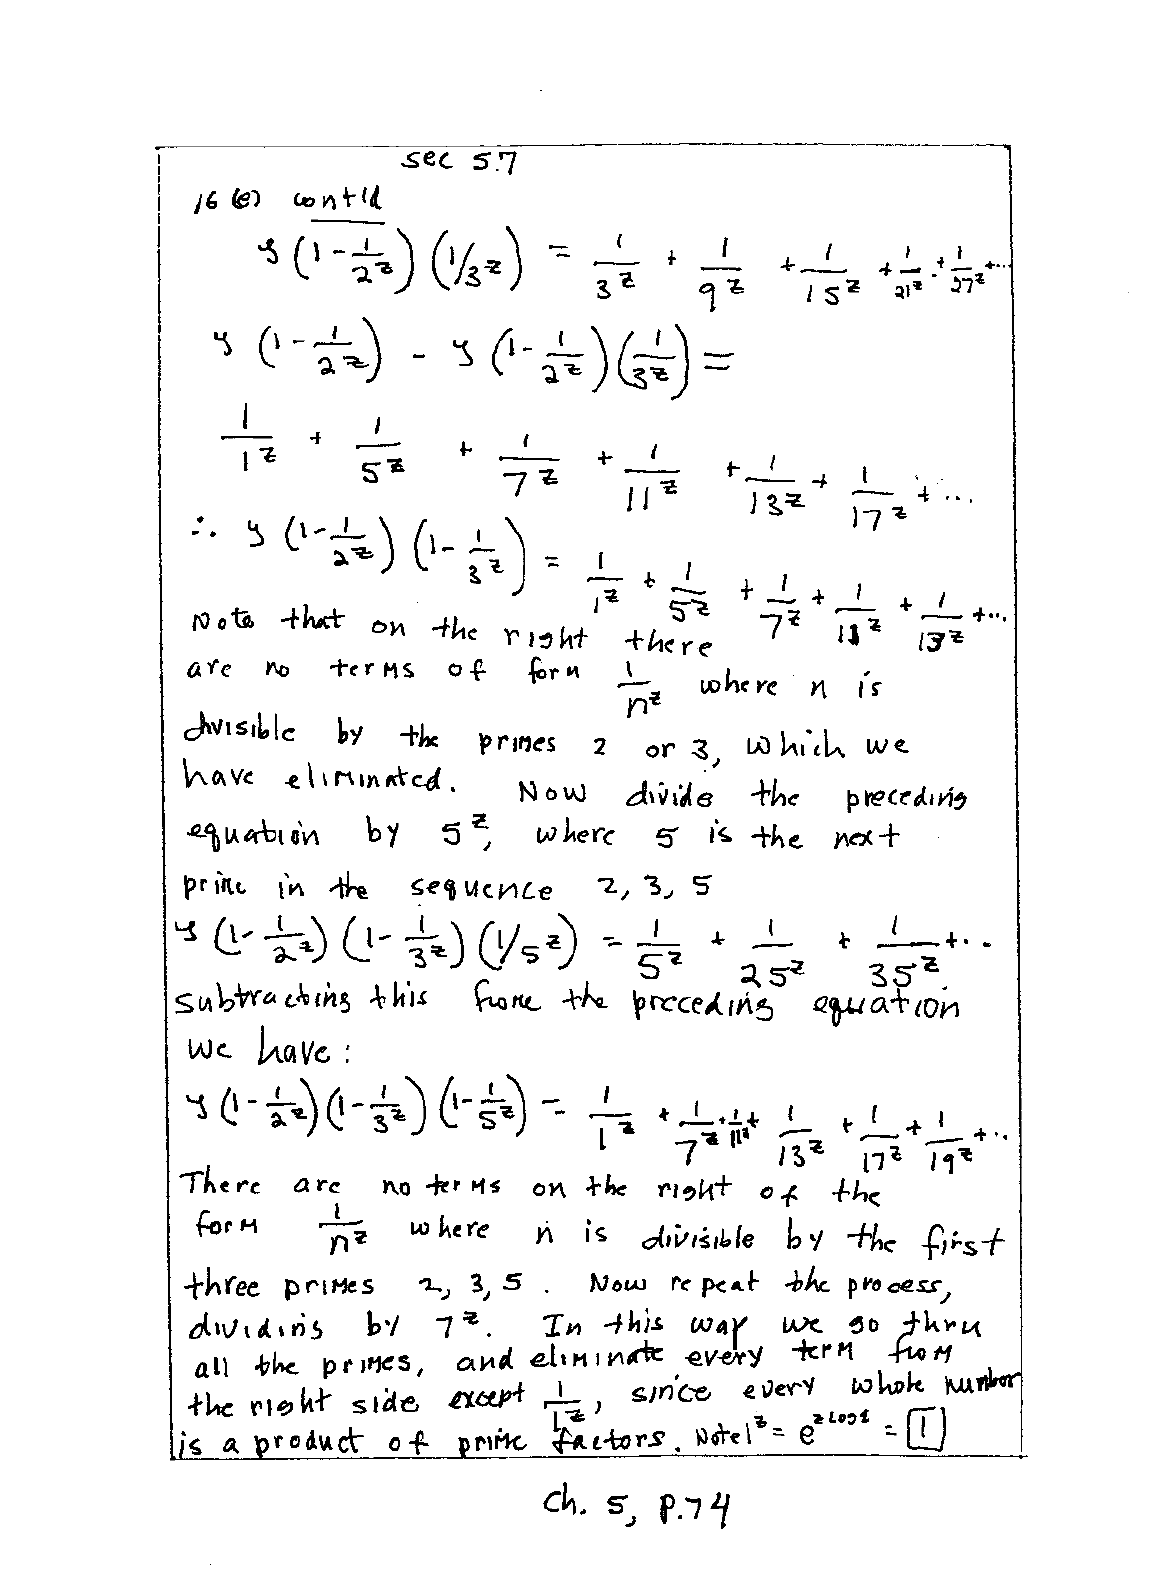 sec 5.7
16 (e) cont'd
ζ (1 - 1/2^z) (1/3^z) = 1/3^z + 1/9^z + 1/15^z + 1/21^z + 1/27^z + ...
ζ (1 - 1/2^z) - ζ (1 - 1/2^z) (1/3^z) =
1/1^z + 1/5^z + 1/7^z + 1/11^z + 1/13^z + 1/17^z + ...
∴ ζ (1 - 1/2^z) (1 - 1/3^z) = 1/1^z + 1/5^z + 1/7^z + 1/11^z + 1/13^z + ...
Note that on the right there
are no terms of form 1/n^z where n is
divisible by the primes 2 or 3, which we
have eliminated. Now divide the preceding
equation by 5^z, where 5 is the next
prime in the sequence 2, 3, 5
ζ (1 - 1/2^z) (1 - 1/3^z) (1/5^z) = 1/5^z + 1/25^z + 1/35^z + ...
subtracting this from the preceding equation
we have:
ζ (1 - 1/2^z) (1 - 1/3^z) (1 - 1/5^z) = 1/1^z + 1/7^z + 1/11^z + 1/13^z + 1/17^z + 1/19^z + ...
There are no terms on the right of the
form 1/n^z where n is divisible by the first
three primes 2, 3, 5. Now repeat the process,
dividing by 7^z. In this way we go thru
all the primes, and eliminate every term from
the right side except 1/1^z, since every whole number
is a product of prime factors. Note 1^z = e^{z Log 1} = 1
Ch. 5, p.74